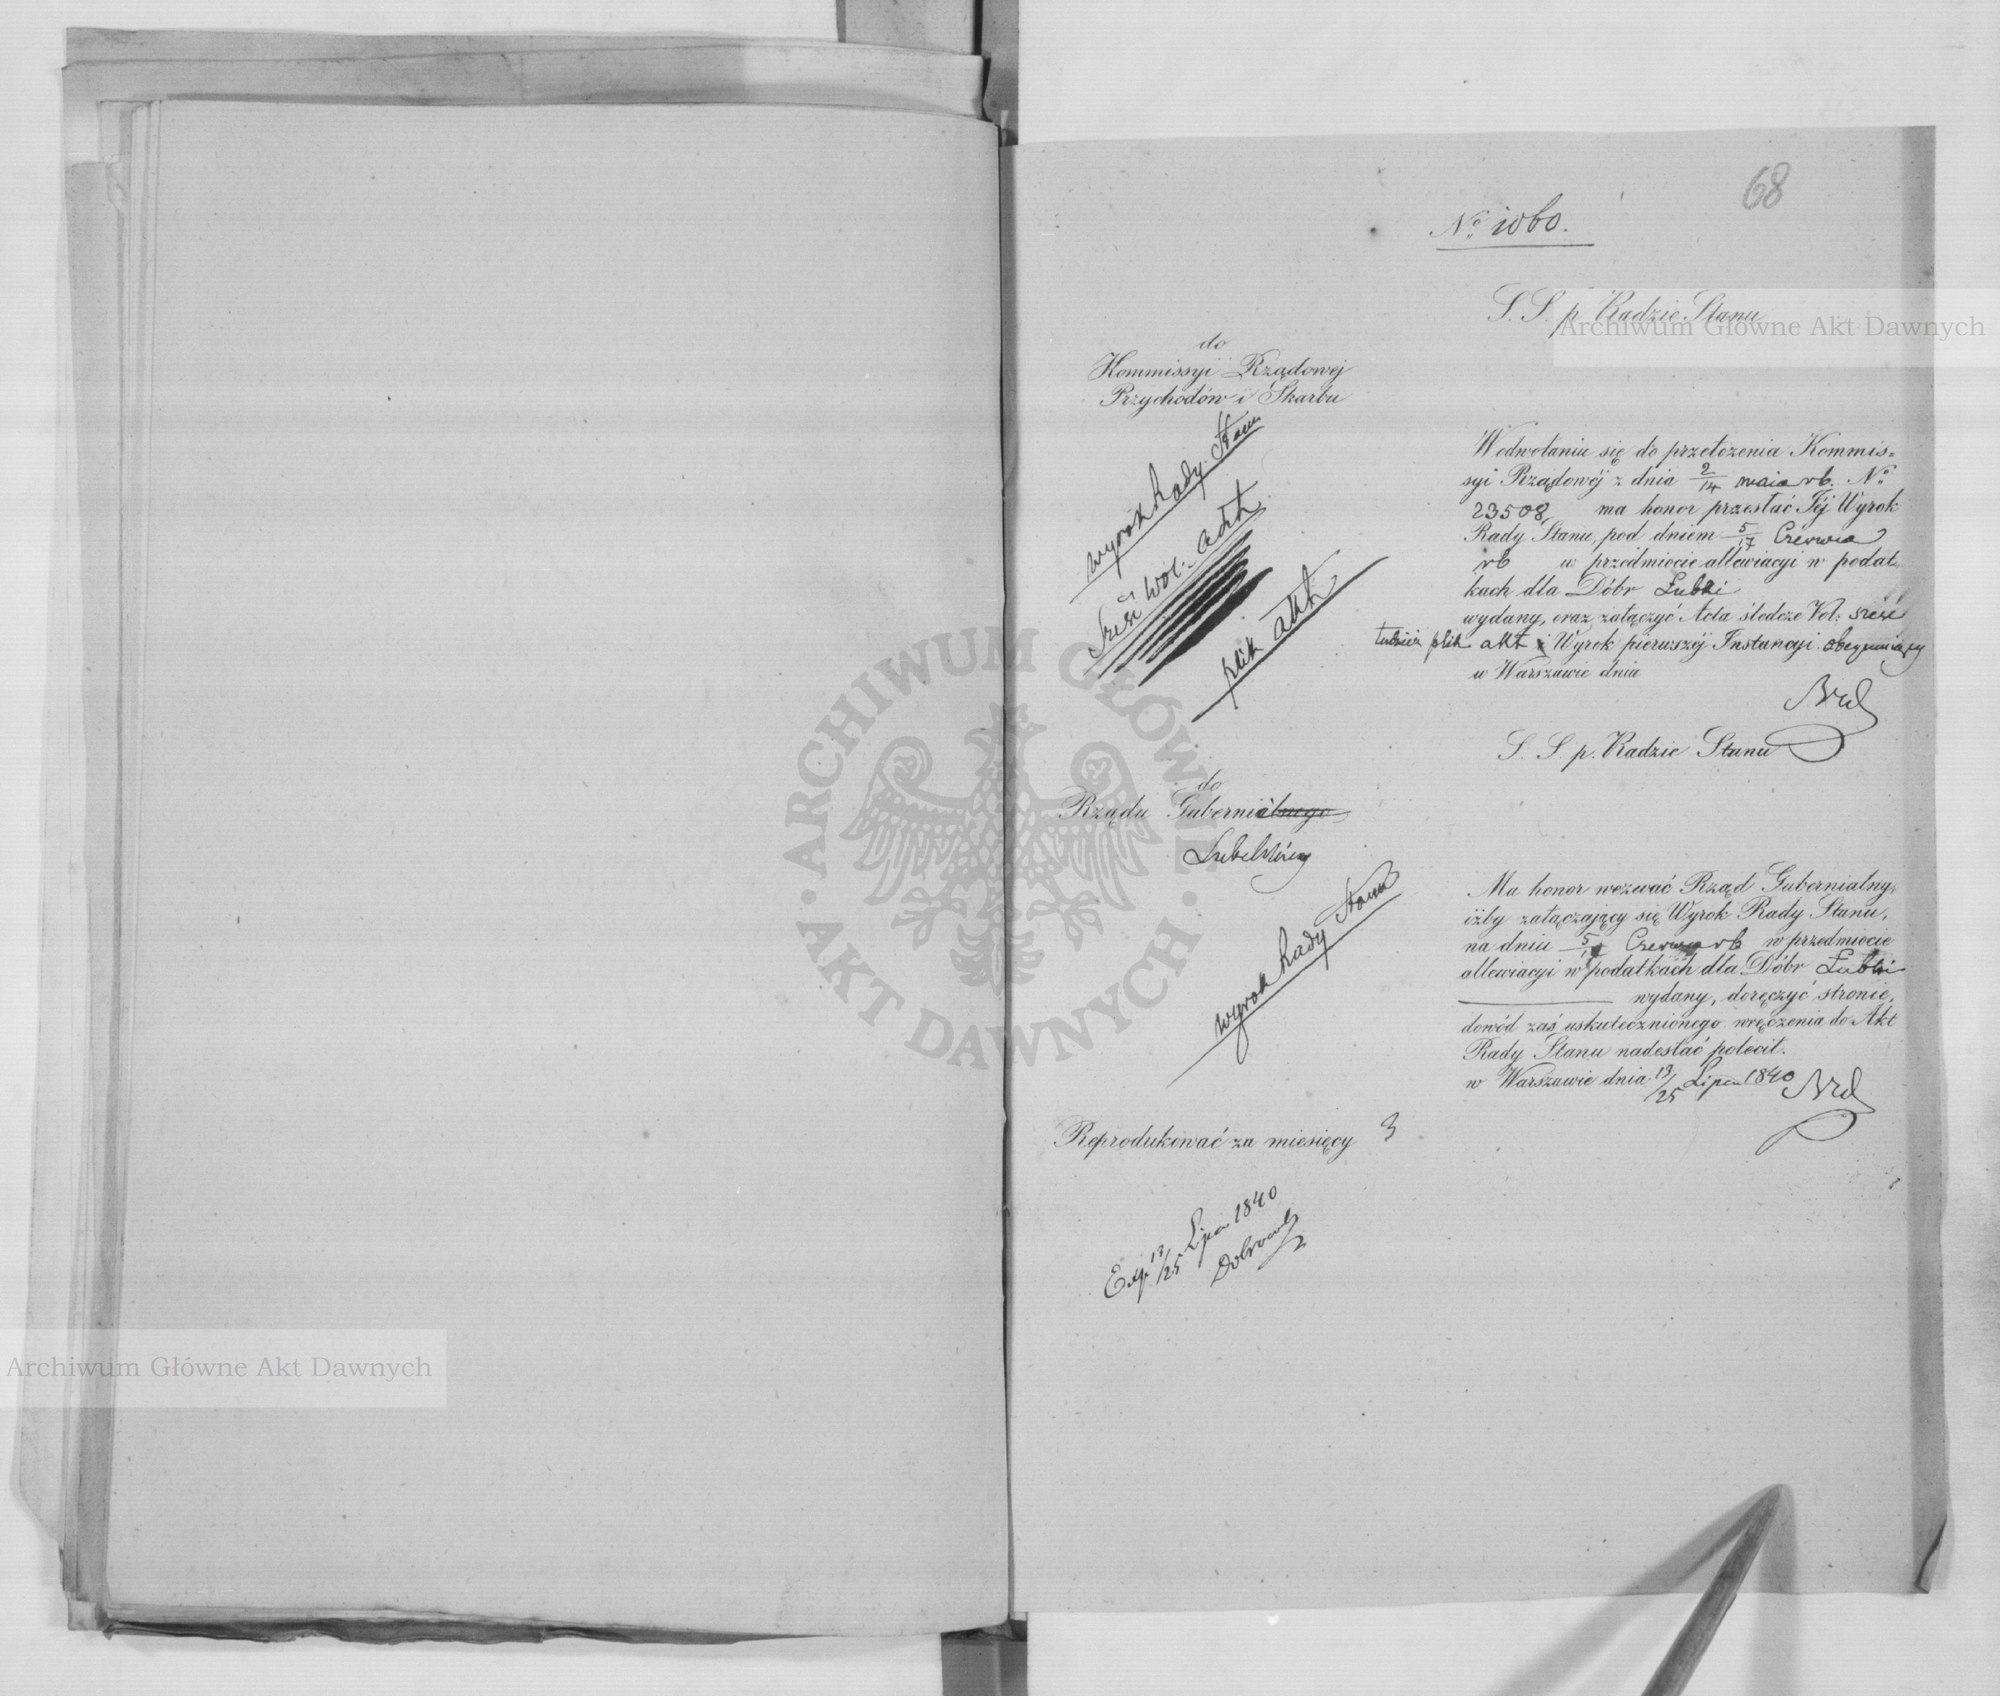 68
No 1060.
S. S. p. Radzie Stanu
do
Kommissyi Rządowej
Przychodów i Skarbu
wyrok Rady Stanu
Sześć Vol. akt
plik akt
W odwołaniu się do przełożenia Kommis=
syi Rządowéj z dnia 2/14 maia rb. No
23508, ma honor przesłać Téj Wyrok
Rady Stanu, pod dniem 5/17 Czerwca
rb w przedmiocie allewiacyi w podat=
kach dla Dóbr Łubki
wydany, oraz załączyć Acta śledcze Vol: sześć
tudzież plik akt i Wyrok pierwszéj Instancyi obeymuiący
w Warszawie dnia
S. S p. Radzie Stanu
do
Rządu Gubernialnego
Lubelskiego
wyrok Rady Stanu
Ma honor wezwać Rząd Gubernialny,
iżby załączający się Wyrok Rady Stanu,
na dniu 5/17 Czerwca rb w przedmiocie
allewiacyi w podatkach dla Dóbr Łubki
wydany, doręczyć stronie,
dowód zaś uskutecznionego wręczenia do Akt
Rady Stanu nadesłać polecił.
w Warszawie dnia 13/25 Lipca 1840
Reprodukować za miesięcy 3
Exp 13/25 Lipca 1840
Archiwum Główne Akt Dawnych
Archiwum Główne Akt Dawnych
ARCHIWUM GŁÓWNE · AKT DAWNYCH ·